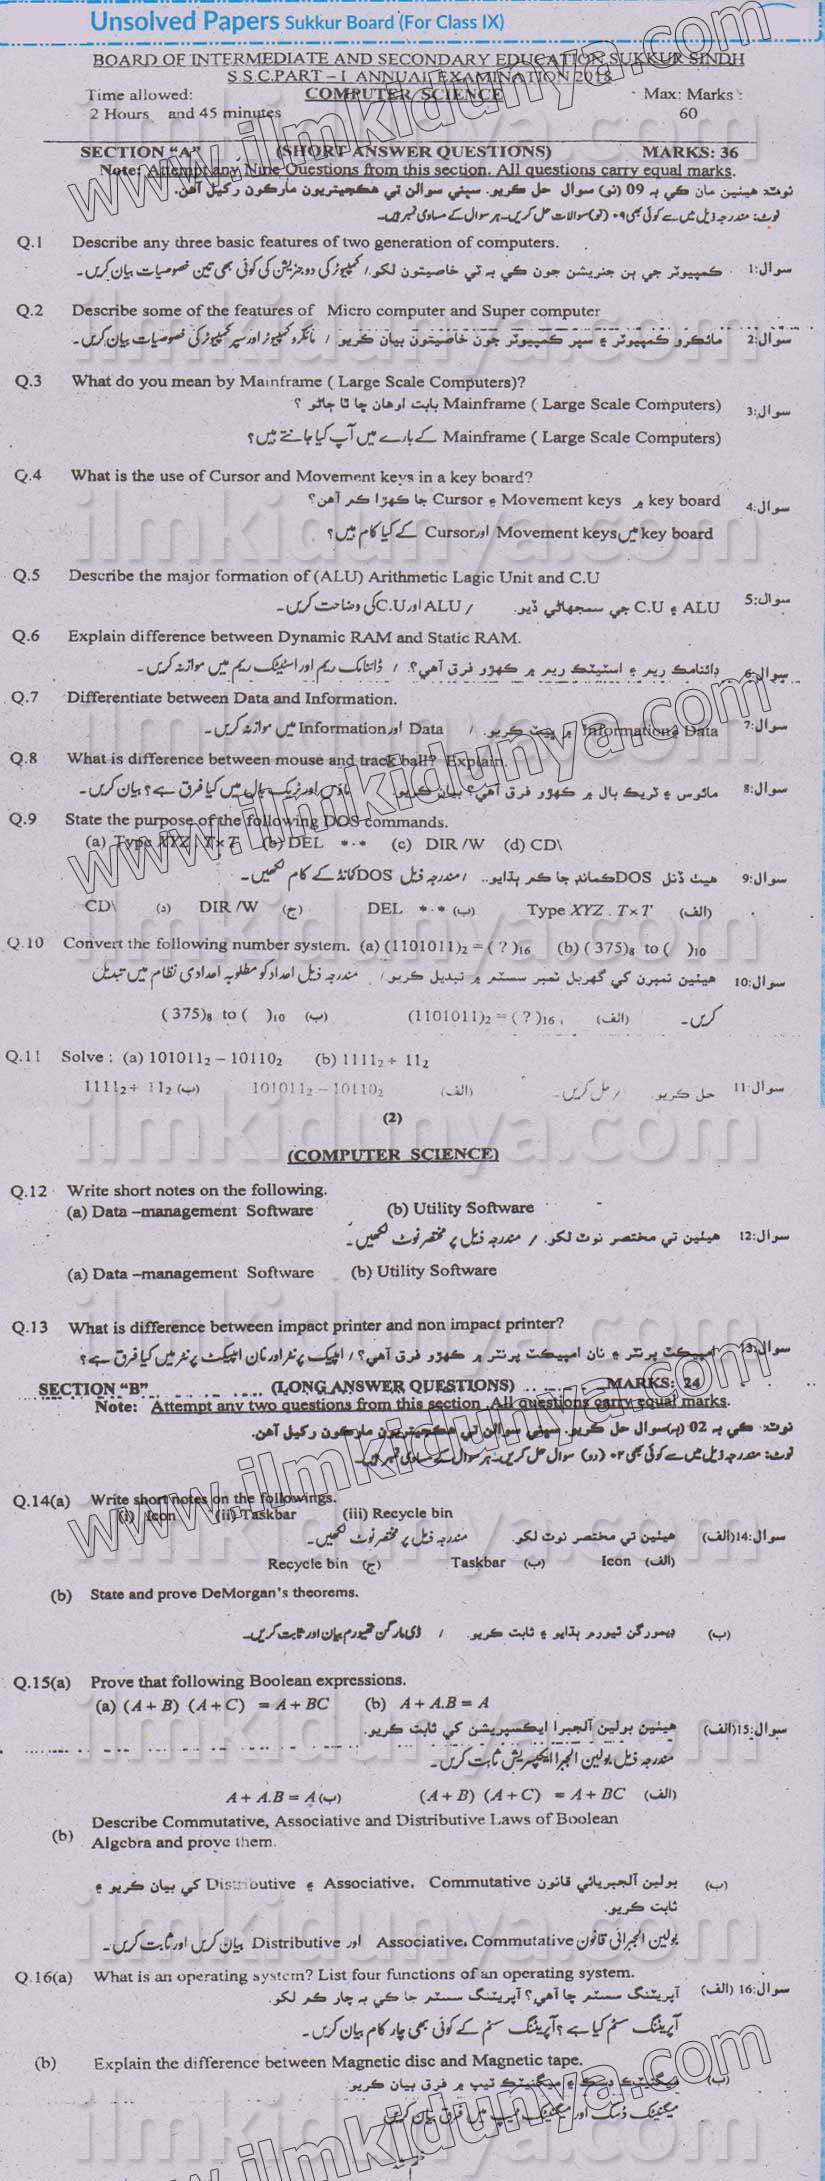 Unsolved Papers Sukkur Board (For Class IX)
BOARD OF INTERMEDIATE AND SECONDARY EDUCATION SUKKUR SINDH
S.S.C.PART – I ANNUAL EXAMINATION 2018
Time allowed: COMPUTER SCIENCE Max: Marks :
2 Hours and 45 minutes 60
SECTION "A" (SHORT ANSWER QUESTIONS) MARKS: 36
Note: Attempt any Nine Questions from this section. All questions carry equal marks.
نوٽ: هيٺين مان ڪي به 09 (نو) سوال حل ڪريو. سڀني سوالن تي هڪجيتريون مارڪون رکيل آهن.
نوٹ: مندرجہ ذیل میں سے کوئی بھی ۰۹ (نو) سوالات حل کریں۔ ہر سوال کے مساوی نمبر ہیں۔
Q.1 Describe any three basic features of two generation of computers.
سوال:1 ڪمپيوٽر جي ٻن جنريشن جون ڪي به ٽي خاصيتون لکو. / کمپیوٹر کی دو جنریشن کی کوئی بھی تین خصوصیات بیان کریں۔
Q.2 Describe some of the features of Micro computer and Super computer
سوال:2 مائڪرو ڪمپيوٽر ۽ سپر ڪمپيوٽر جون خاصيتون بيان ڪريو / مائکرو کمپیوٹر اور سپر کمپیوٹر کی خصوصیات بیان کریں۔
Q.3 What do you mean by Mainframe ( Large Scale Computers)?
سوال:3 Mainframe ( Large Scale Computers) بابت اوهان ڇا ٿا ڄاڻو ؟
Mainframe ( Large Scale Computers) کے بارے میں آپ کیا جانتے ہیں؟
Q.4 What is the use of Cursor and Movement keys in a key board?
سوال:4 key board ۾ Movement keys ۽ Cursor جا ڪهڙا ڪم آهن؟
key board میں Movement keys اور Cursor کے کیا کام ہیں؟
Q.5 Describe the major formation of (ALU) Arithmetic Lagic Unit and C.U
سوال:5 ALU ۽ C.U جي سمجهاڻي ڏيو. / ALU اور C.U کی وضاحت کریں۔
Q.6 Explain difference between Dynamic RAM and Static RAM.
سوال:6 ڊائنامڪ ريم ۽ اسٽيٽڪ ريم ۾ ڪهڙو فرق آهي؟. / ڈائنامک ریم اور اسٹیٹک ریم میں موازنہ کریں۔
Q.7 Differentiate between Data and Information.
سوال:7 Data ۽ Information ۾ ڀيٽ ڪريو. / Data اور Information میں موازنہ کریں۔
Q.8 What is difference between mouse and track ball? Explain.
سوال:8 مائوس ۽ ٽريڪ بال ۾ ڪهڙو فرق آهي؟ بيان ڪريو. ماؤس اور ٹریک بال میں کیا فرق ہے؟ بیان کریں۔
Q.9 State the purpose of the following DOS commands.
(a) Type XYZ . T×T (b) DEL *.* (c) DIR /W (d) CD\
سوال:9 هيٺ ڏنل DOS ڪمانڊ جا ڪم ٻڌايو.. / مندرجہ ذیل DOS کمانڈ کے کام لکھیں۔
(الف) Type XYZ . T×T (ب) DEL *.* (ج) DIR /W (د) CD\
Q.10 Convert the following number system. (a) (1101011)₂ = ( ? )₁₆ (b) ( 375)₈ to ( )₁₀
سوال:10 هيٺين نمبرن کي گهربل نمبر سسٽم ۾ تبديل ڪريو/ مندرجہ ذیل اعداد کو مطلوبہ اعدادی نظام میں تبدیل
کریں۔ (الف) (1101011)₂ = ( ? )₁₆ . (ب) ( 375)₈ to ( )₁₀
Q.11 Solve : (a) 101011₂ – 10110₂ (b) 1111₂ ÷ 11₂
سوال:11 حل ڪريو. / حل کریں۔ (الف) 101011₂ – 10110₂ (ب) 1111₂ ÷ 11₂
(2)
(COMPUTER SCIENCE)
Q.12 Write short notes on the following.
(a) Data –management Software (b) Utility Software
سوال:12 هيٺين تي مختصر نوٽ لکو. / مندرجہ ذیل پر مختصر نوٹ لکھیں۔
(a) Data –management Software (b) Utility Software
Q.13 What is difference between impact printer and non impact printer?
سوال:13 امپيڪٽ پرنٽر ۽ نان امپيڪٽ پرنٽر ۾ ڪهڙو فرق آهي؟ / امپیکٹ پرنٹر اور نان امپیکٹ پرنٹر میں کیا فرق ہے؟
SECTION "B" (LONG ANSWER QUESTIONS) MARKS: 24
Note: Attempt any two questions from this section .All questions carry equal marks.
نوٽ: ڪي به 02 (ٻه) سوال حل ڪريو. سڀني سوالن تي هڪجيتريون مارڪون رکيل آهن.
نوٹ: مندرجہ ذیل میں سے کوئی بھی ۰۲ (دو) سوال حل کریں۔ ہر سوال کے مساوی نمبر ہیں۔
Q.14(a) Write short notes on the followings.
(i) Icon (ii) Taskbar (iii) Recycle bin
سوال:14(الف) هيٺين تي مختصر نوٽ لکو. مندرجہ ذیل پر مختصر نوٹ لکھیں۔
(الف) Icon (ب) Taskbar (ج) Recycle bin
(b) State and prove DeMorgan's theorems.
(ب) ڊيمورگن ٿيورم ٻڌايو ۽ ثابت ڪريو. / ڈی مارگن تھیورم بیان اور ثابت کریں۔
Q.15(a) Prove that following Boolean expressions.
(a) (A + B) (A + C) = A + BC (b) A + A.B = A
سوال:15(الف) هيٺين بولين آلجبرا ايڪسپريشن کي ثابت ڪريو.
مندرجہ ذیل بولین الجبرا ایکسپریشن ثابت کریں۔
(الف) (A + B) (A + C) = A + BC (ب) A + A.B = A
(b) Describe Commutative, Associative and Distributive Laws of Boolean
Algebra and prove them.
(ب) بولين آلجبريائي قانون Associative، Commutative ۽ Distributive کي بيان ڪريو ۽
ثابت ڪريو.
بولین الجبرائی قانون Associative، Commutative اور Distributive بیان کریں اور ثابت کریں۔
Q.16(a) What is an operating system? List four functions of an operating system.
سوال:16 (الف) آپريٽنگ سسٽم ڇا آهي؟ آپريٽنگ سسٽم جا ڪي به چار ڪم لکو.
آپریٹنگ سسٹم کیا ہے؟ آپریٹنگ سسٹم کے کوئی بھی چار کام بیان کریں۔
(b) Explain the difference between Magnetic disc and Magnetic tape.
(ب) ميگنيٽڪ ڊسڪ ۽ ميگنيٽڪ ٽيپ ۾ فرق بيان ڪريو.
میگنیٹک ڈسک اور میگنیٹک ٹیپ میں فرق بیان کریں۔
www.ilmkidunya.com